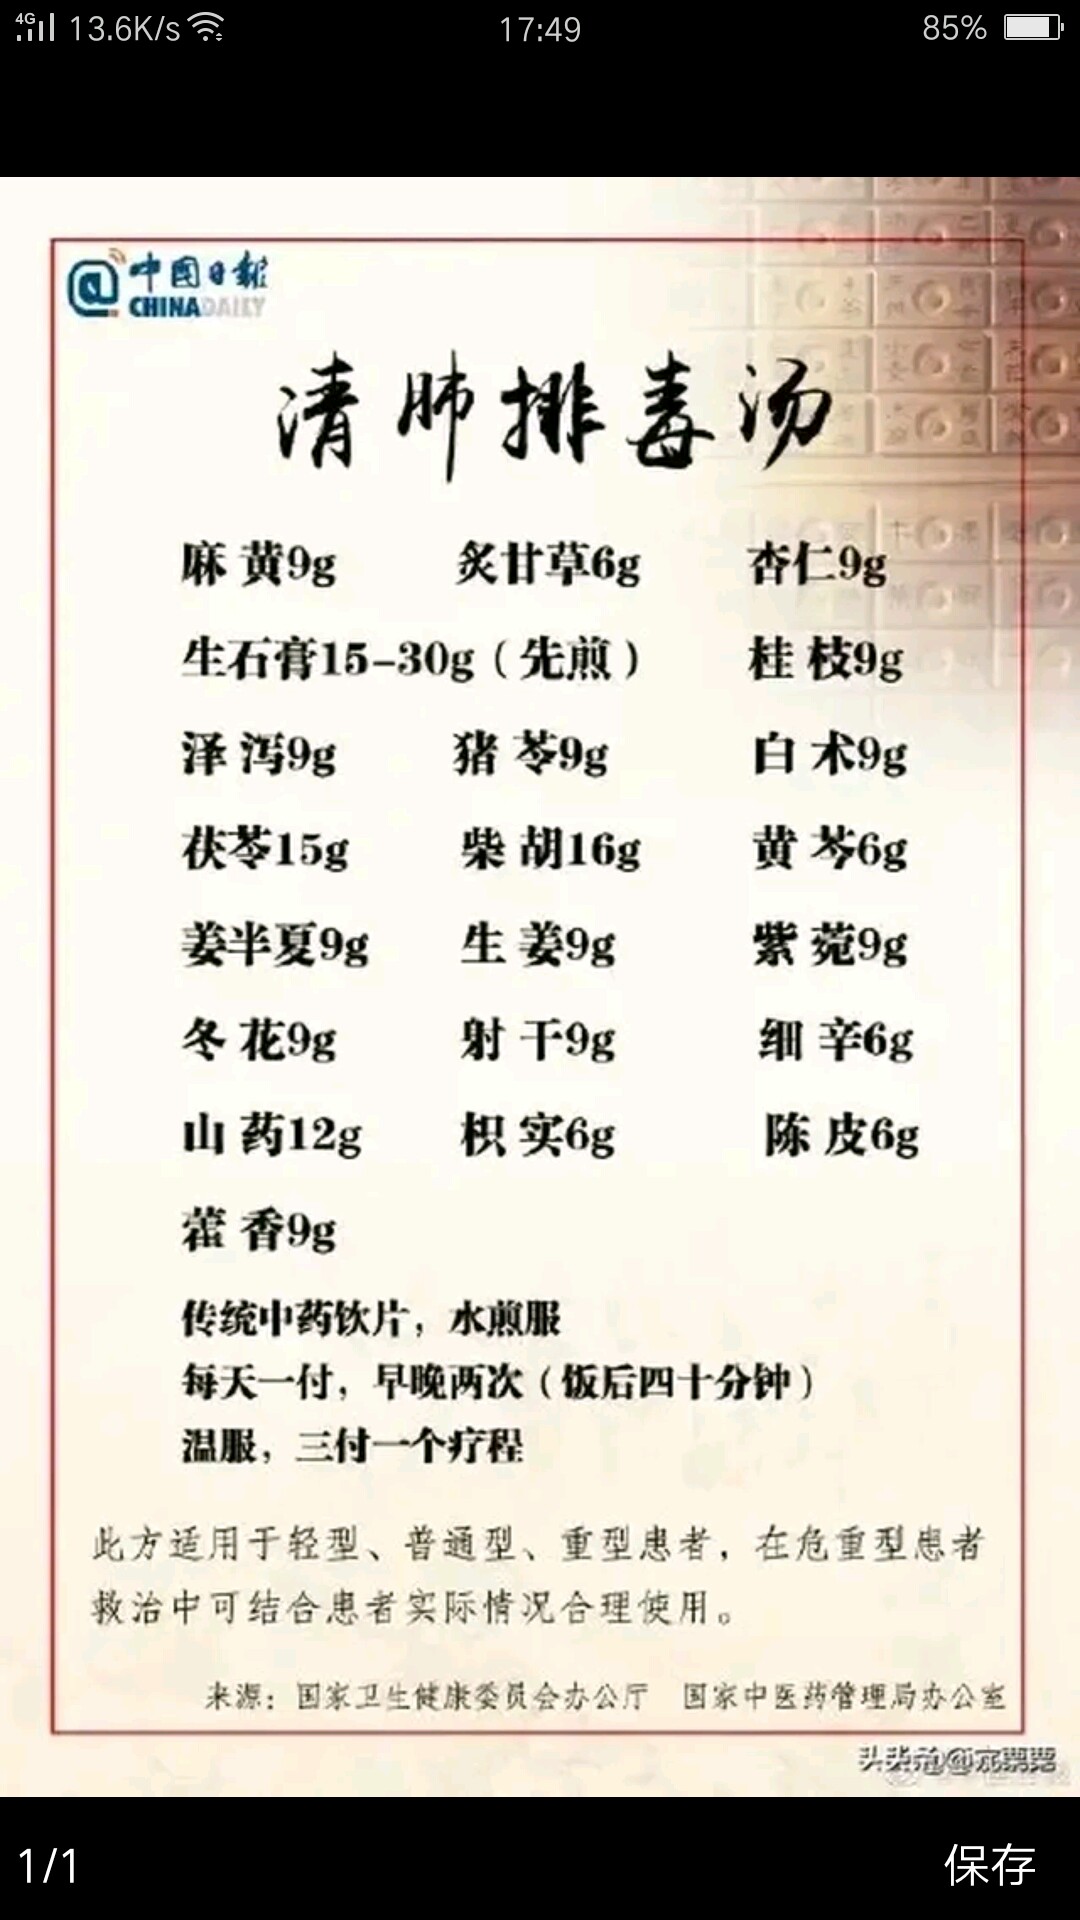 4G 13.6K/s 17:49 85%
中国日报
CHINADAILY
清肺排毒汤
麻黄9g 炙甘草6g 杏仁9g
生石膏15-30g（先煎） 桂枝9g
泽泻9g 猪苓9g 白术9g
茯苓15g 柴胡16g 黄芩6g
姜半夏9g 生姜9g 紫菀9g
冬花9g 射干9g 细辛6g
山药12g 枳实6g 陈皮6g
藿香9g
传统中药饮片，水煎服
每天一付，早晚两次（饭后四十分钟）
温服，三付一个疗程
此方适用于轻型、普通型、重型患者，在危重型患者
救治中可结合患者实际情况合理使用。
来源：国家卫生健康委员会办公厅 国家中医药管理局办公室
1/1 保存